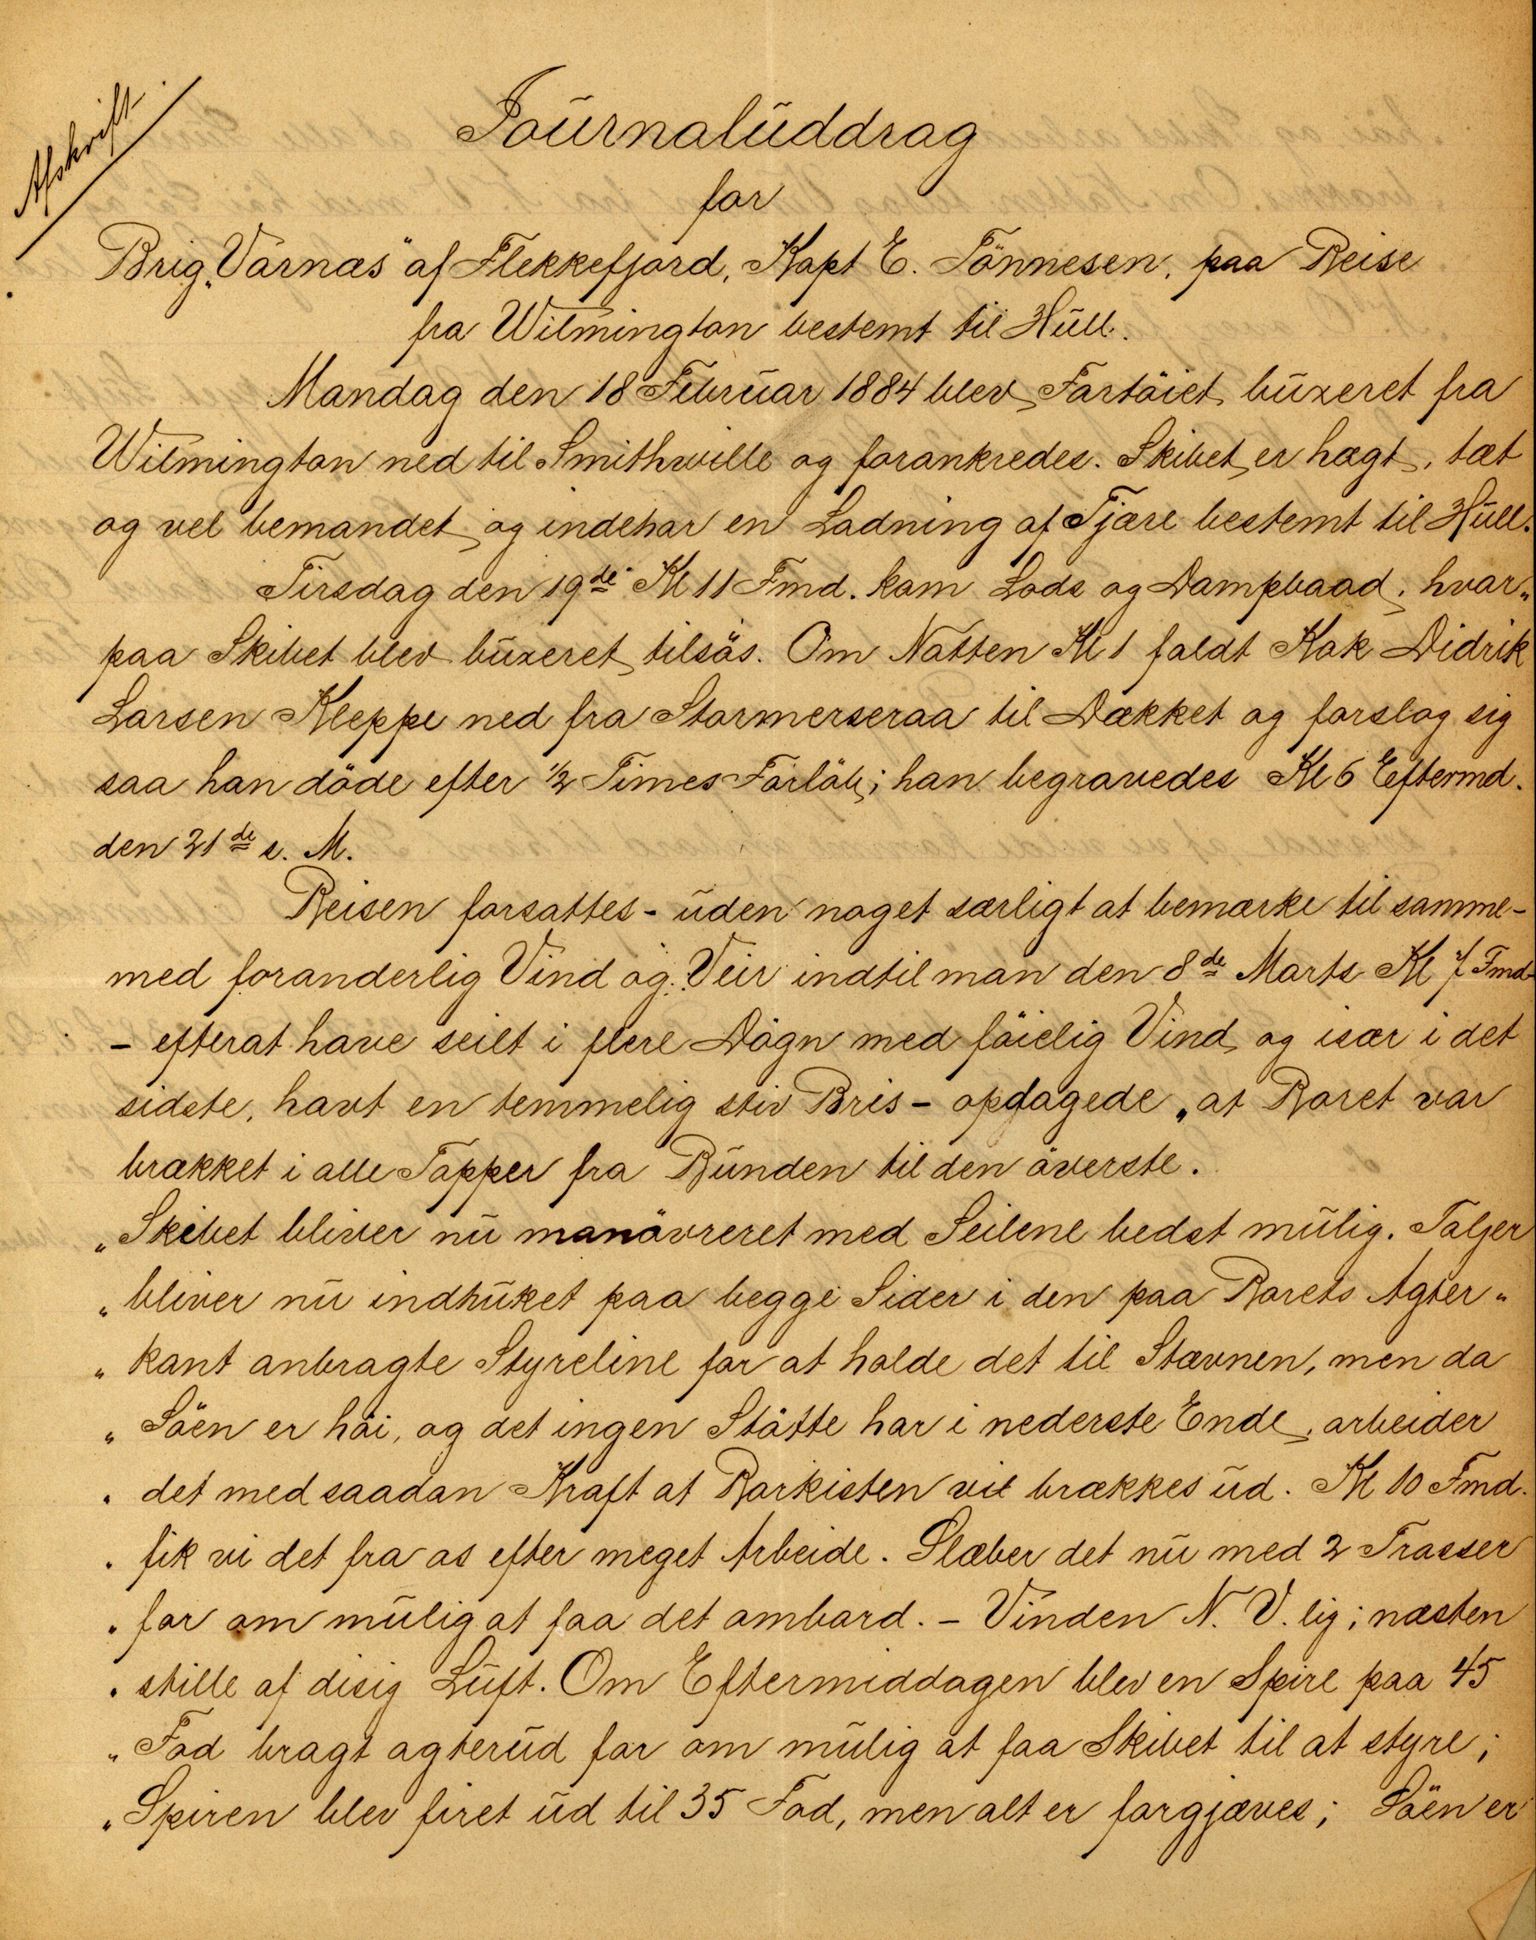 Afskrift.
Journaluddrag
for
Brig „Varnæs" af Flekkefjord, Kapt E. Tönnesen, paa Reise
fra Wilmington bestemt til Hull.
Mandag den 18 Februar 1884 blev Fartöiet buxeret fra
Wilmington ned til Smithville og forankredes. Skibet er hægt, tæt
og vel bemandet og indehar en Ladning af Tjære bestemt til Hull.
Tirsdag den 19de Kl 11 Fmd. kom Lods og Dampbaad, hvor„
paa Skibet blev buxeret tilsös. Om Natten Kl 1 faldt Kok Didrik
Larsen Kleppe ned fra Stormerseraa til Dækket og forslog sig
saa han döde efter ½ Times Forlöb; han begravedes Kl 6 Eftermd.
den 21de s. M.
Reisen forsattes - uden noget særligt at bemærke til samme -
med foranderlig Vind og Veir indtil man den 8de Marts Kl 7 Fmd
- efterat have seilt i flere Dögn med föielig Vind og især i det
sidste, havt en temmelig stiv Bris - opdagede „at Roret var
brækket i alle Tapper fra Bunden til den överste.
„Skibet bliver nu manövreret med Seilene bedst mulig. Taljer
„bliver nu indhuket paa begge Sider i den paa Rorets Agter„
„kant anbragte Styreline for at holde det til Stævnen, men da
„Söen er höi, og det ingen Stötte har i nederste Ende, arbeider
„det med saadan Kraft at Rorkisten vil brækkes ud. Kl 10 Fmd.
„fik vi det fra os efter meget Arbeide. Slæber det nu med 2 Trosser
„for om mulig at faa det ombord. - Vinden N. V. lig; næsten
„stille af disig Luft. Om Eftermiddagen blev en Spire paa 45
„Fod bragt agterud for om mulig at faa Skibet til at styre;
„Spiren blev firet ud til 35 Fod, men alt er forgjæves; Söen er